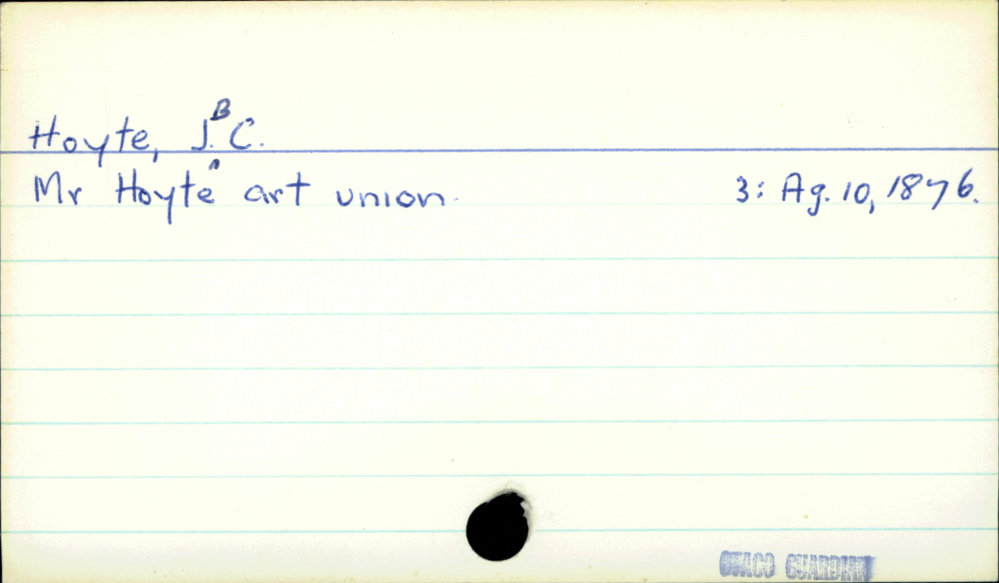 Hoyte, J.B.C.
Mr Hoyte art union. 3: Ag. 10, 1876.
OTAGO GUARDIAN